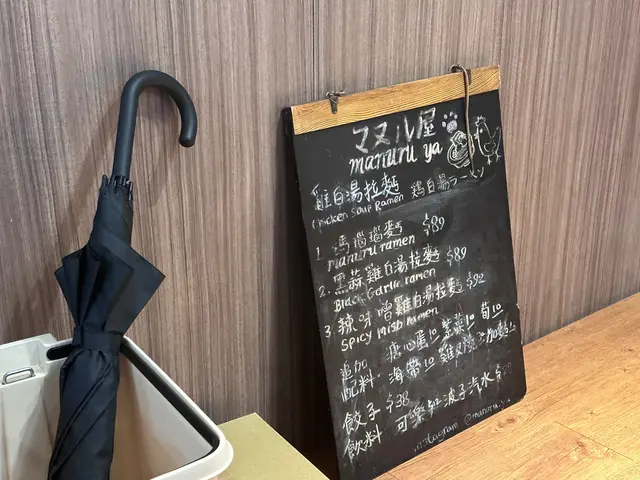 マヌル屋
manuru ya
雞白湯拉麵 鶏白湯ラーメン
Chicken Soup Ramen
1. 瑪瑙麵 $89
manuru ramen
2. 黑蒜雞白湯拉麵 $89
Black Garlic ramen
3. 辣味噌雞白湯拉麵 $92
Spicy miso ramen
追加 糖心蛋10 筍10
配料. 海帶10 雞叉燒
餃子 $38
飲料 可樂 波子汽水
instagram @manuru.ya